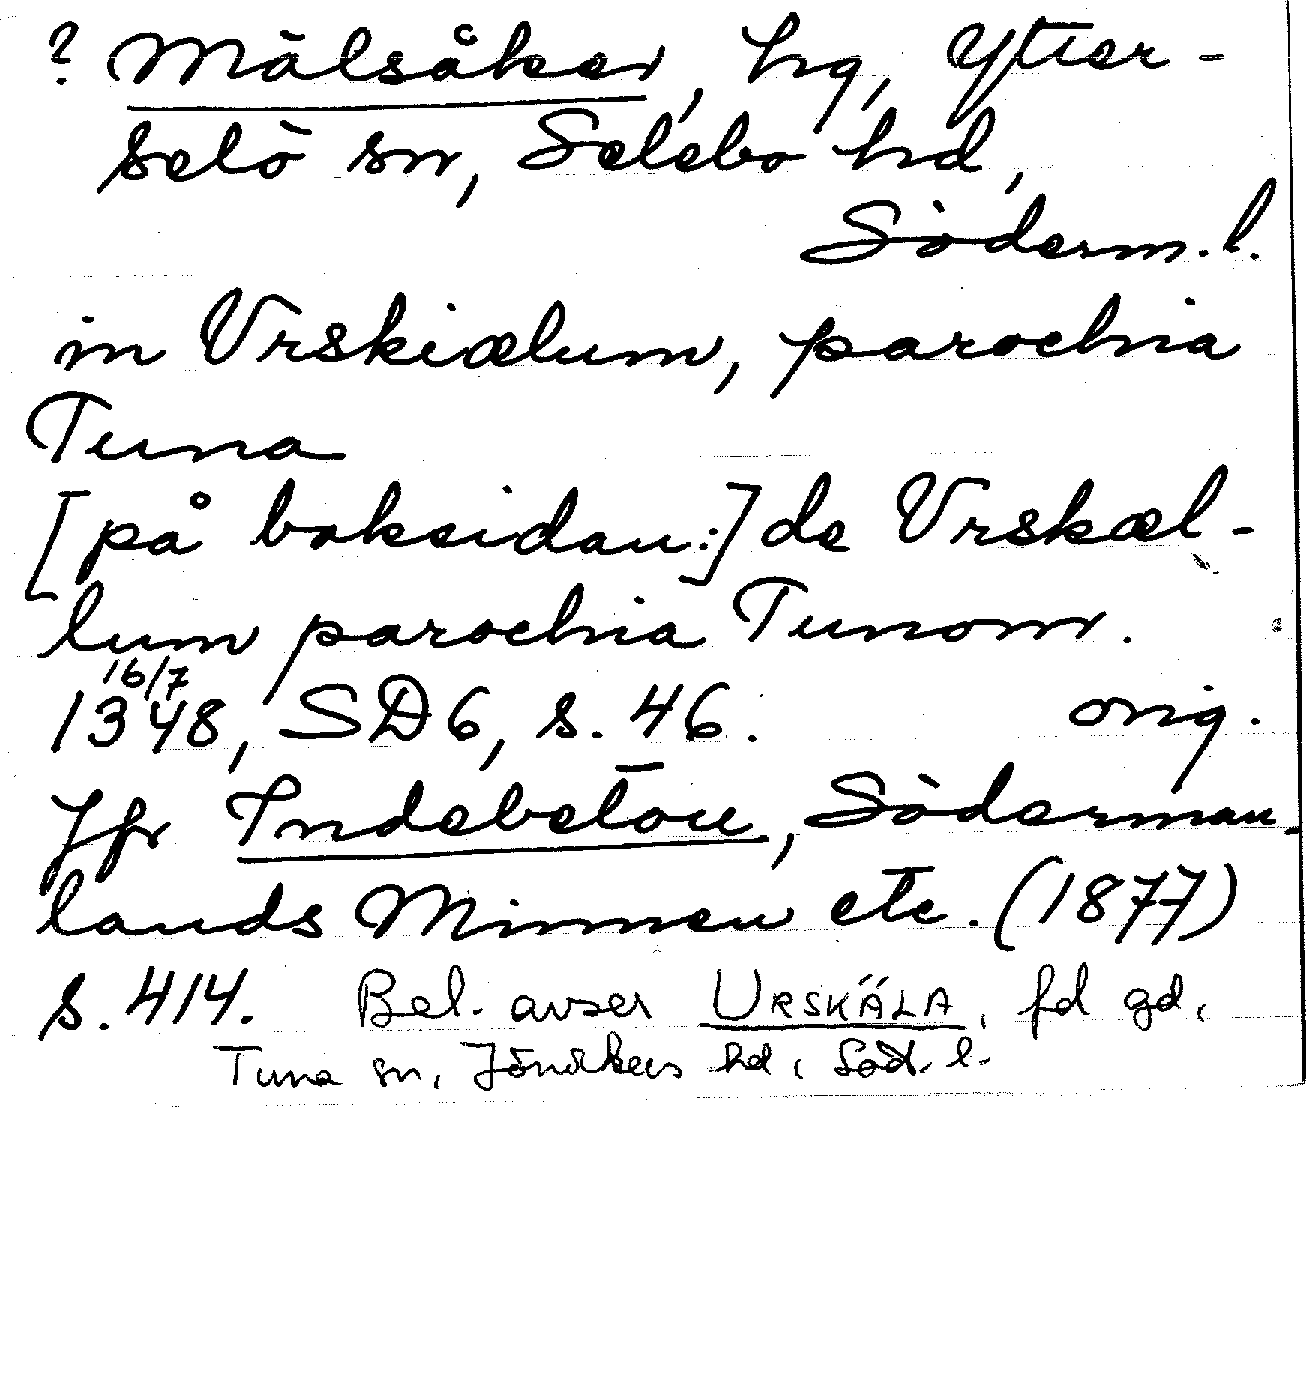 ? Mälsåker, hg, Ytter-
selö sn, Selebo hd,
Söderm. l.
in Vrskiælum, parochia
Tuna
[på baksidan:] de Vrskæl-
lum parochia Tunom.
16/7
1348, SD 6, s. 46. orig.
Jfr Indebetou, Söderman-
lands Minnen etc. (1877)
s. 414. Bel. avser URSKÄLA, fd gd,
Tuna sn, Jönåkers hd, Söd. l.